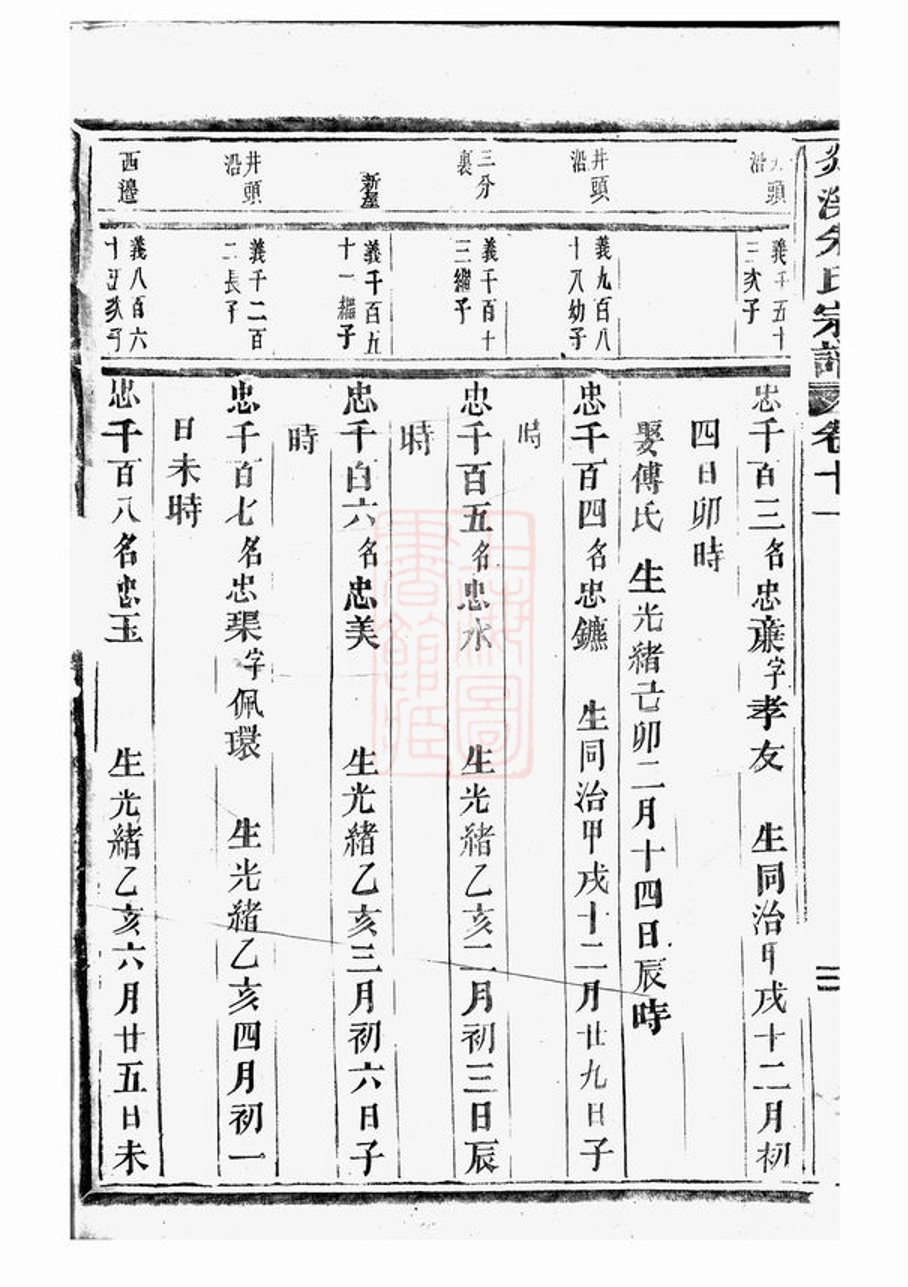 宗譜 卷十一
頭沿
義千五十三次子
忠千百三名忠㢘字孝友 生同治甲戌十二月初
四日卯時
娶傅氏 生光緒己卯二月十四日辰時
井頭沿
義九百八十八幼子
忠千百四名忠鑣 生同治甲戌十二月廿九日子
時
三分裏
義千百十三繼子
忠千百五名忠水 生光緒乙亥二月初三日辰
時
新屋
義千百五十一繼子
忠千百六名忠美 生光緒乙亥三月初六日子
時
井頭沿
義千二百二長子
忠千百七名忠琹字佩環 生光緒乙亥四月初一
日未時
西邊
義八百六十五次子
忠千百八名忠玉 生光緒乙亥六月廿五日未